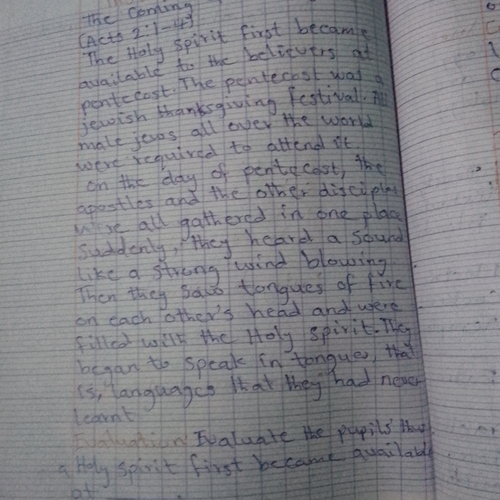 The Coming
(Acts 2:1-4)
The Holy Spirit first became
available to the believers at
pentecost. The pentecost was a
jewish thanksgiving festival. All
male jews all over the world
were required to attend it.
on the day of pentecost, the
apostles and the other disciples
were all gathered in one place
Suddenly, they heard a sound
Like a strong wind blowing
Then they saw tongues of fire
on each other's head and were
filled with the Holy spirit. They
began to speak in tongues, that
is, languages that they had never
learnt
Evaluation: Evaluate the pupils thus
a Holy spirit first became available
at